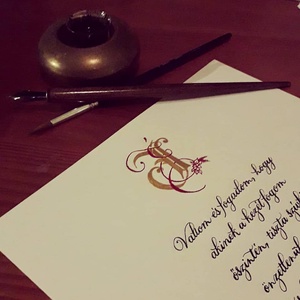 Vallom és fogadom, hogy
akinek a kezét fogom
őszintén, tiszta
önzetlenül